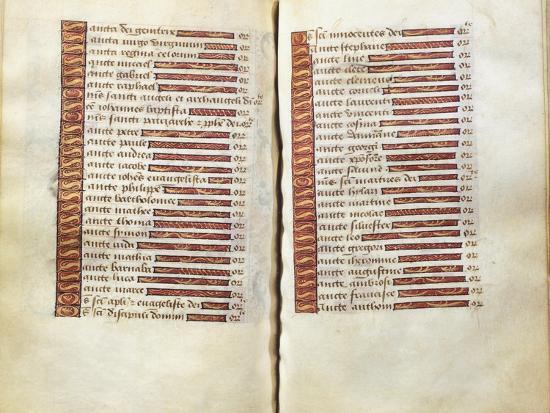 Sancta dei genitrix or
Sancta uirgo uirginum or
Sancta regina celorum or
Sancte michael or
Sancte gabriel or
Sancte raphael or
Oms sancti angeli et archangeli di or
Sce iohannes baptista or
Oms sancti patriarche & pphe dei or
Sancte petre or
Sancte paule or
Sancte andrea or
Sancte iacobe or
Sancte iohes euangelista or
Sancte philippe or
Sancte bartholomee or
Sancte mathee or
Sancte thoma or
Sancte symon or
Sancte iuda or
Sancte mathia or
Sancte barnaba or
Sancte luca or
Sancte marce or
Os sci apli & euageliste dei or
Os sci discipuli domini or
Os sci innocentes dei or
Sancte stephane or
Sancte line or
Sancte clete or
Sancte clemens or
Sancte corneli or
Sancte laurenti or
Sancte uincenti or
Sancte cosma or
Sancte damiane or
Sancte georgi or
Sancte xpofore or
Sancte or
Os sci martires dei or
Sancte hylari or
Sancte martine or
Sancte nicolae or
Sancte siluester or
Sancte leo or
Sancte gregori or
Sancte iheronime or
Sancte augustine or
Sancte ambrosi or
Sancte francisce or
Sancte anthoni or